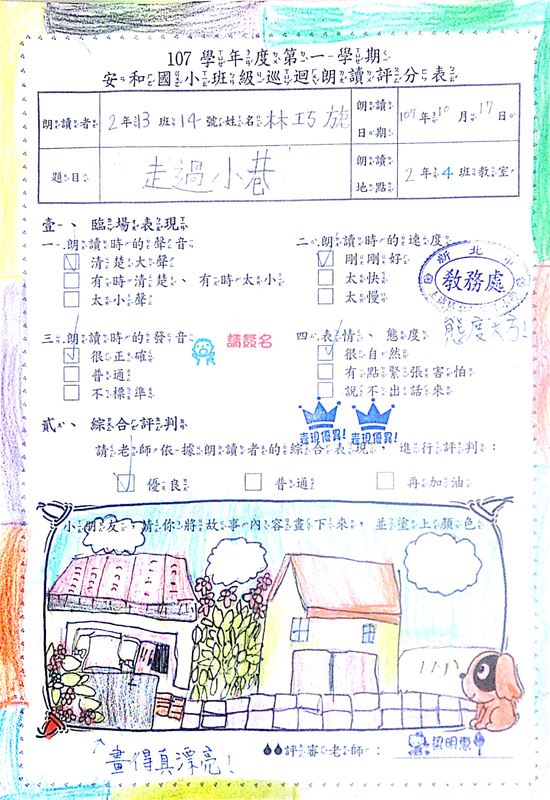 107 學年度第一學期
安和國小班級巡迴朗讀評分表
朗讀者 2年13班14號姓名林巧旎 朗讀日期 107年10月17日
題目 走過小巷 朗讀地點 2年4班教室
壹、臨場表現
一、朗讀時的聲音 二、朗讀時的速度
清楚大聲 剛剛好
有時清楚、有時太小 太快
太小聲 太慢
新北市
教務處
態度大方!
三、朗讀時的發音 四、表情、態度
請簽名
很正確 很自然
普通 有點緊張害怕
不標準 說不出話來
表現優異! 表現優異!
貳、綜合評判
請老師依據朗讀者的綜合表現,進行評判:
優良 普通 再加油
小朋友,請你將故事內容畫下來,並塗上顏色
畫得真漂亮!
評審老師: